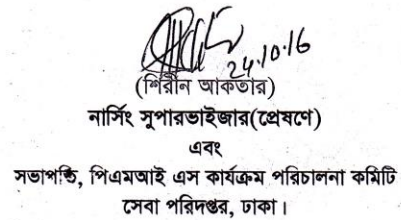 24.10.16
(শিরীন আকতার)
নার্সিং সুপারভাইজার(প্রেষণে)
এবং
সভাপতি, পিএমআই এস কার্যক্রম পরিচালনা কমিটি
সেবা পরিদপ্তর, ঢাকা।